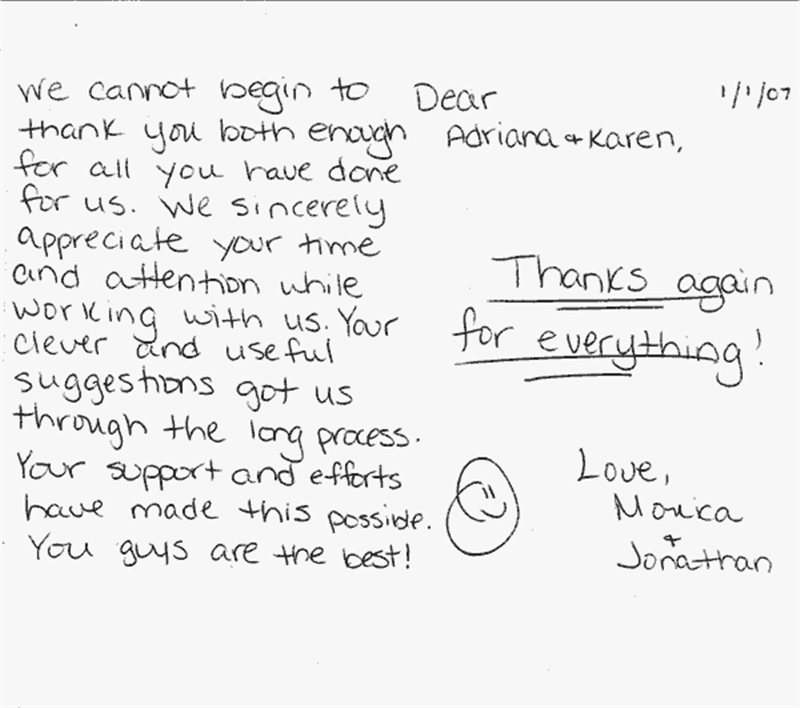 1/1/07
Dear
Adriana + Karen,
We cannot begin to
thank you both enough
for all you have done
for us. We sincerely
appreciate your time
and attention while
working with us. Your
clever and useful
suggestions got us
through the long process.
Your support and efforts
have made this possible.
You guys are the best!
Thanks again
for everything!
Love,
Monica
+
Jonathan